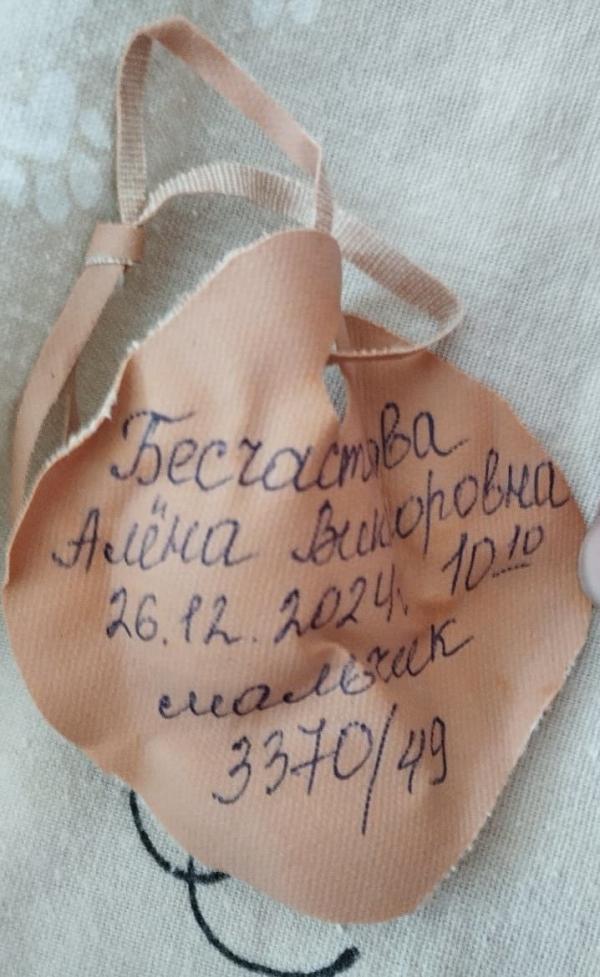 Бесчастова
Алёна Викторовна
26.12.2024. 10 10
мальчик
3370/49